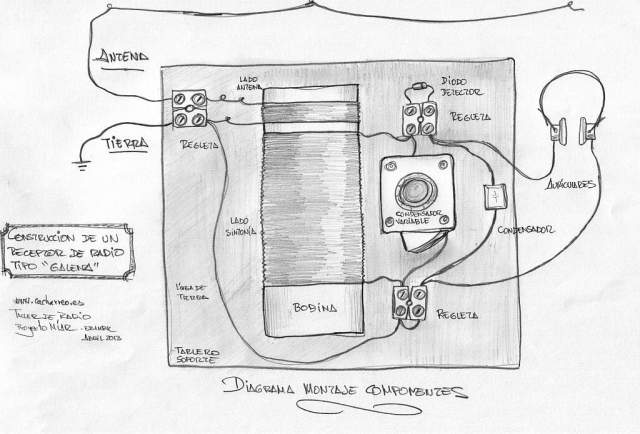 ANTENA
TIERRA
LADO
ANTENA
REGLETA
DIODO
DETECTOR
REGLETA
AURICULARES
CONDENSADOR
VARIABLE
CONDENSADOR
LADO
SINTONÍA
LÍNEA DE
TIERRA
BOBINA
REGLETA
TABLERO
SOPORTE
CONSTRUCCION DE UN
RECEPTOR DE RADIO
TIPO "GALENA"
www.cacharreo.es
TALLER DE RADIO
ABRIL 2013
DIAGRAMA MONTAJE COMPONENTES